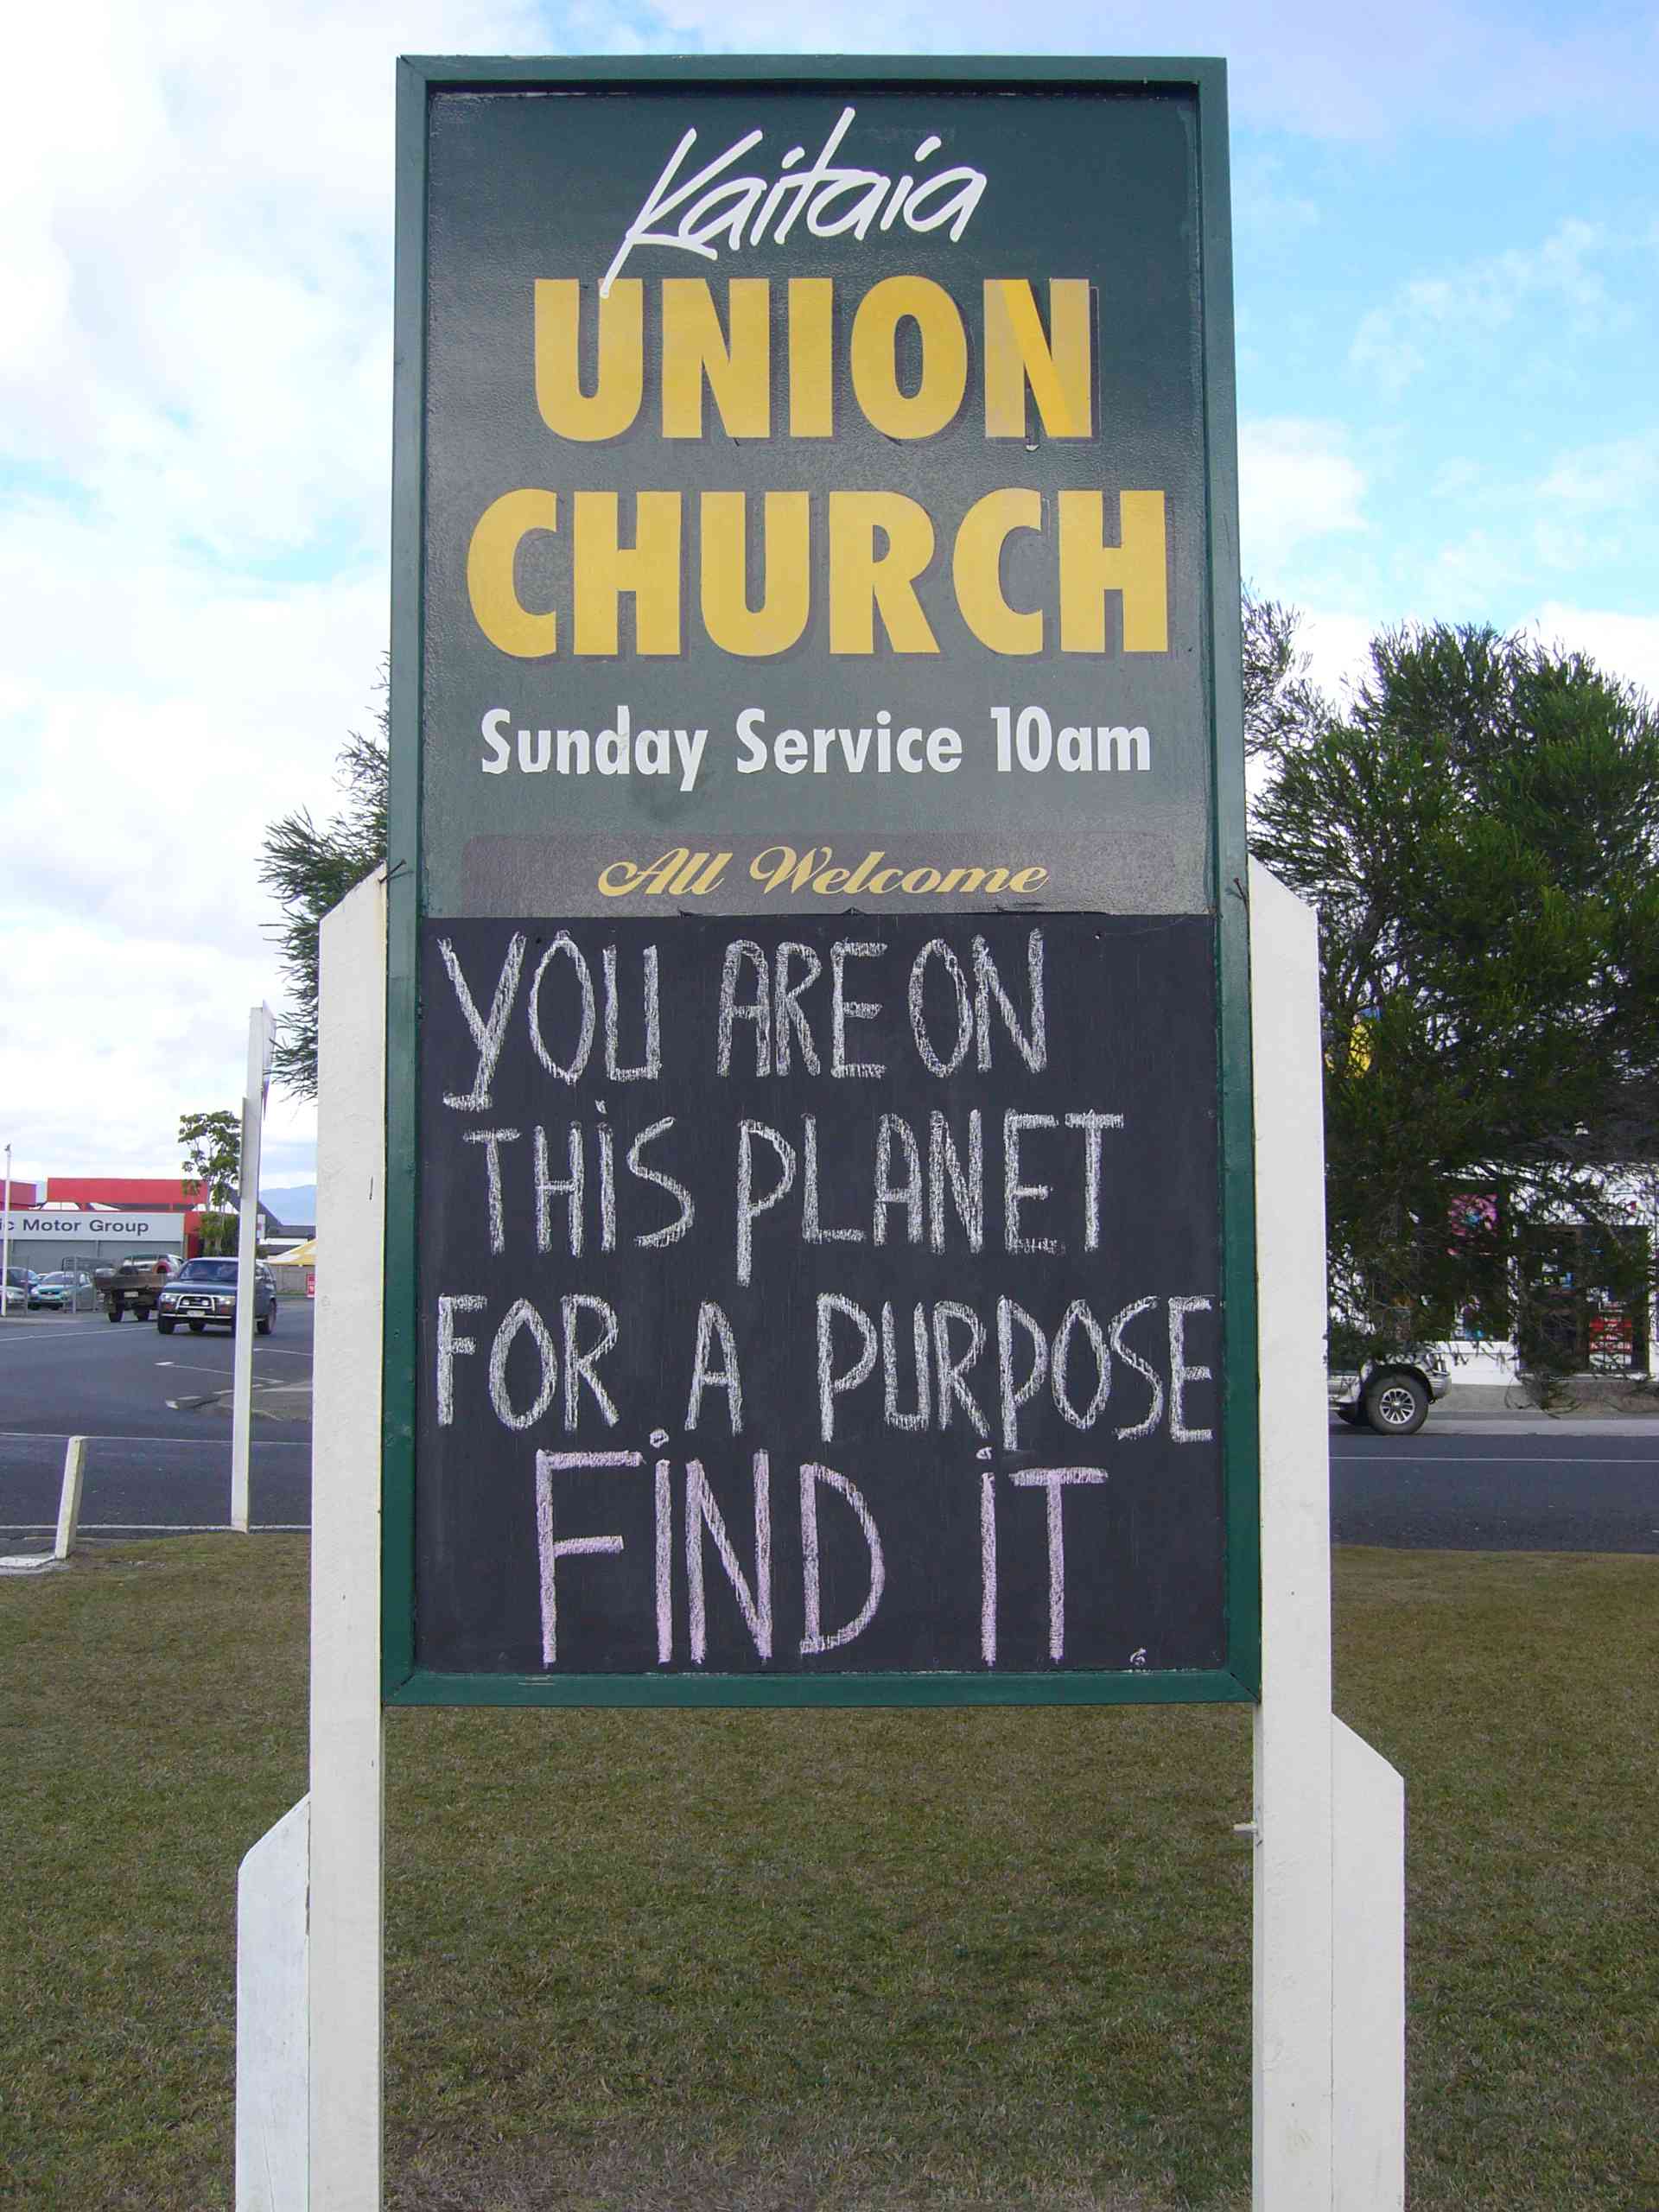 Kaitaia
UNION
CHURCH
Sunday Service 10am
All Welcome
YOU ARE ON
THiS PLANET
FOR A PURPOSE
FiND iT.
Motor Group